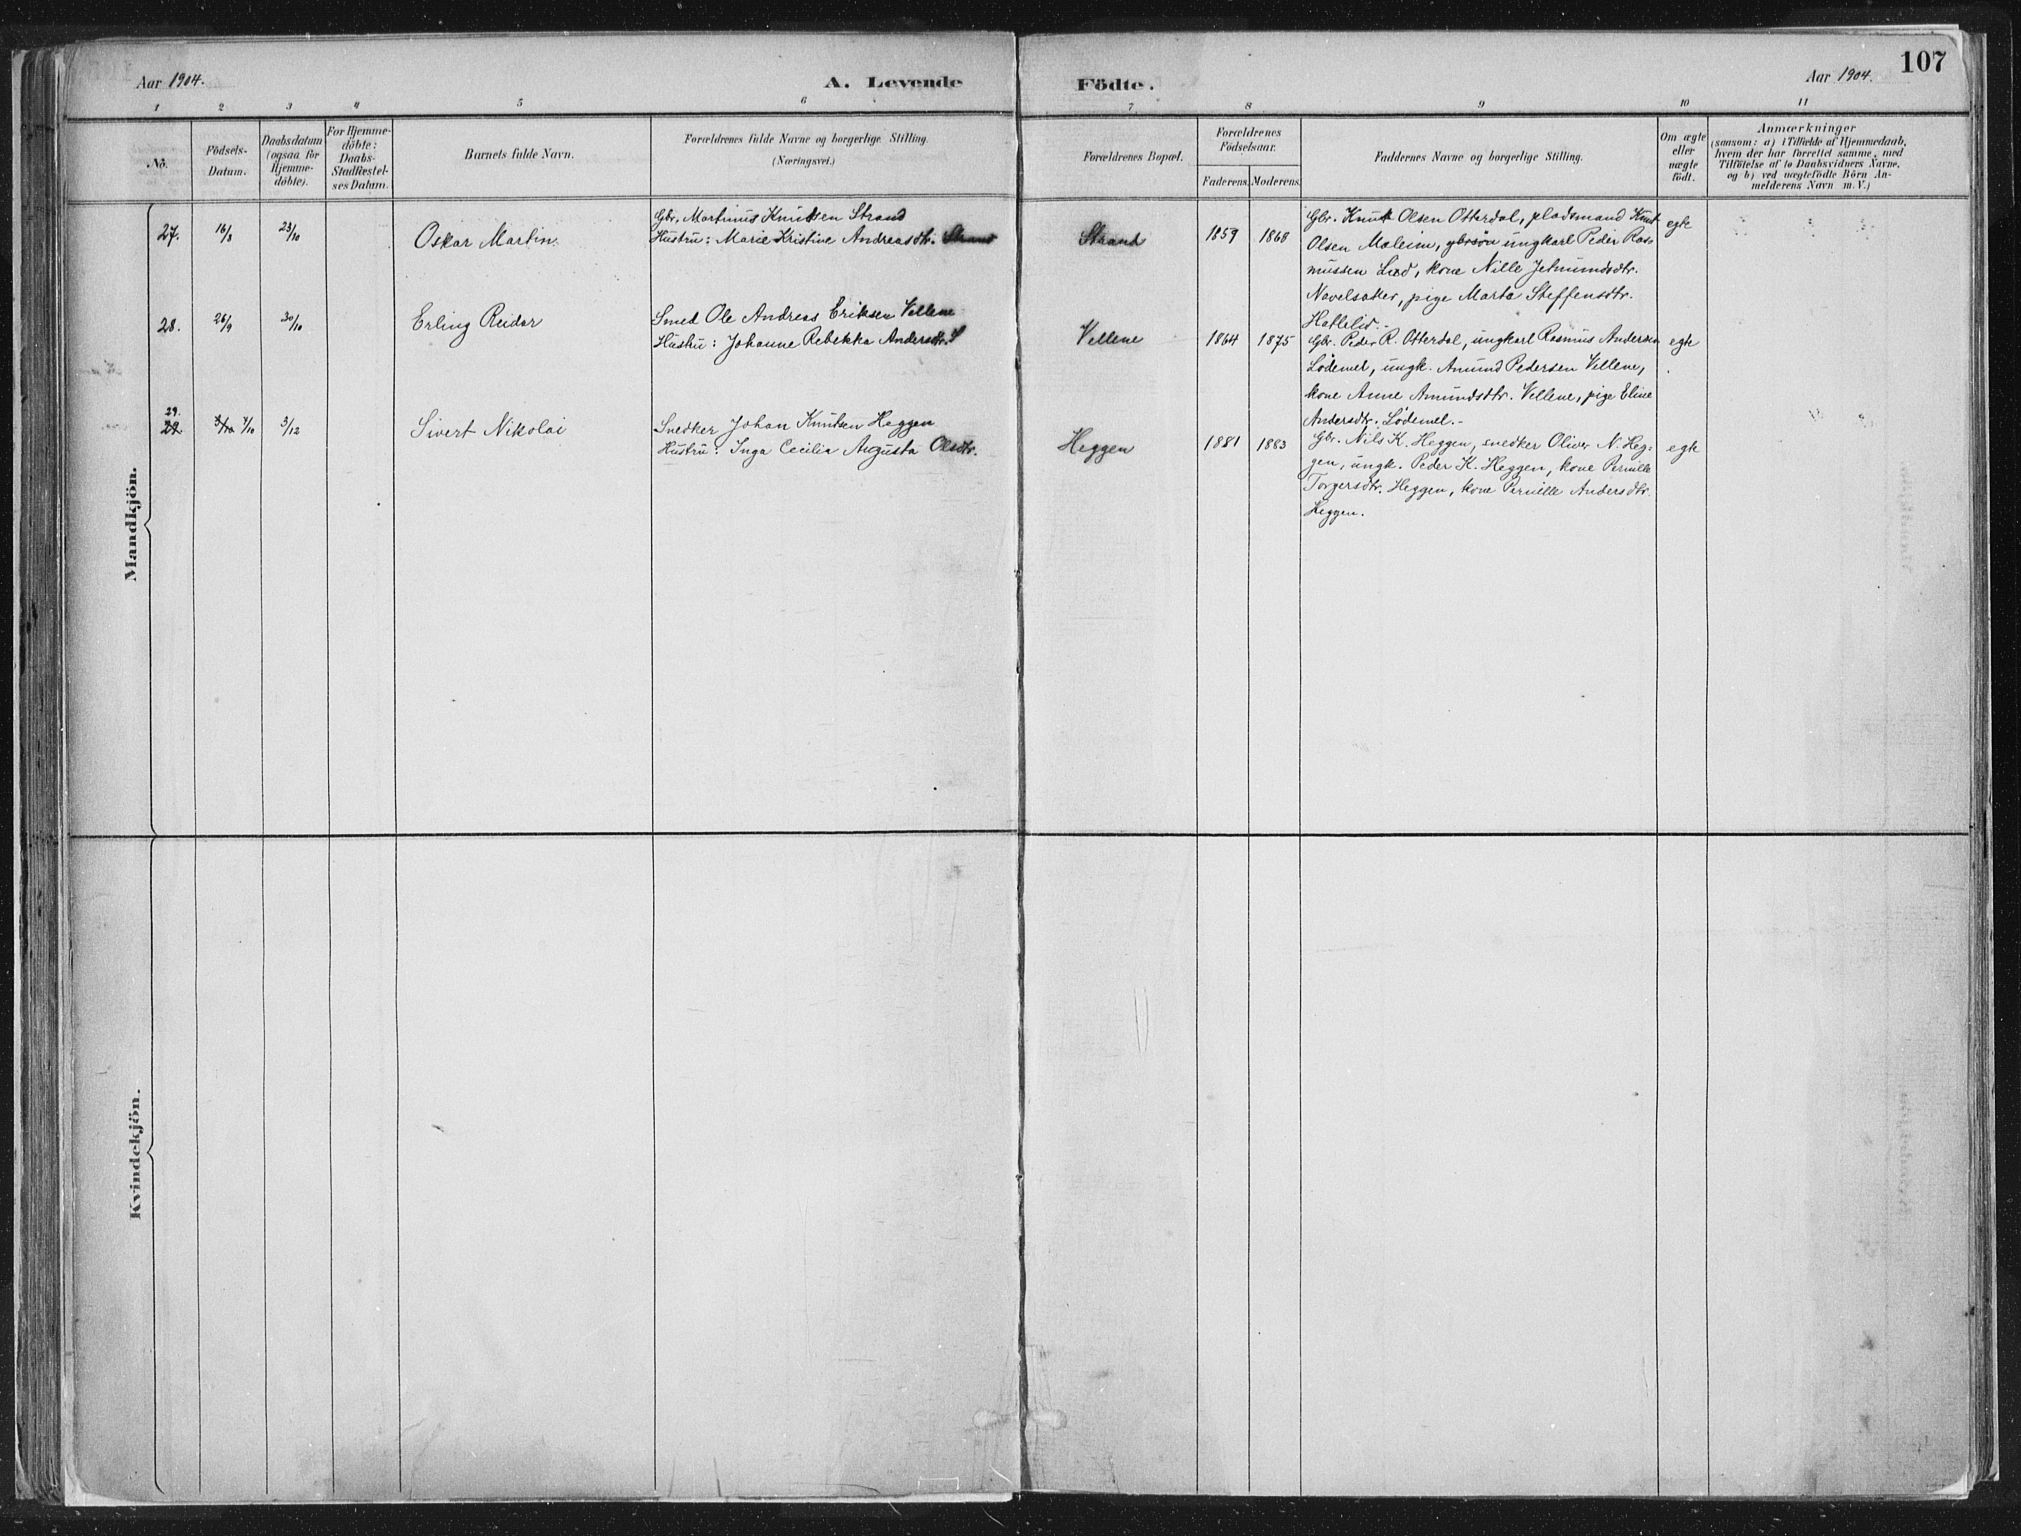 107
Aar 1904.
A. Levende Födte.
Aar 1904.
1 2 3 4 5 6 7 8 9 10 11
No.
Födsels-
Datum.
Daabsdatum
(ogsaa for
Hjemme-
döbte).
For Hjemme-
döbte:
Daabs-
Stadfæstel-
ses Datum.
Barnets fulde Navn.
Forældrenes fulde Navne og borgerlige Stilling.
(Næringsvei.)
Forældrenes Bopæl.
Forældrenes
Födselsaar.
Faderens. Moderens.
Faddernes Navne og borgerlige Stilling.
Om ægte
eller
uægte
födt.
Anmærkninger
(saasom: a) i Tilfælde af Hjemmedaab,
hvem der har forrettet samme, med
Tilföielse af to Daabsvidners Navne,
og b) ved uægtefödte Börn An-
melderens Navn m. V.)
Mandkjön.
27. 16/8 23/10 Oskar Martin.
Gbr. Martinus Knutsen Strand
Hustru: Marie Kristine Andreasdtr. Strand
Strand 1859 1868
Gbr. Knut Olsen Otterdal, pladsmand Knut
Olsen Maleim, gbrsøn ungkarl Peder Ras-
mussen Lød, kone Nille Jetmundsdtr.
Navelsaker, pige Marta Steffensdtr.
Hatlelid.-
egte
28. 26/9 30/10 Erling Reidar
Smed Ole Andreas Eriksen Vellene
Hustru: Johanne Rebekka Andersdtr.
Vellene 1864 1875
Gbr. Peder R. Otterdal, ungkarl Rasmus Andersen
Lødemel, ungk. Amund Pedersen Vellene,
kone Anne Amundsdtr. Vellene, pige Eline
Andersdtr. Lødemel.-
egte
29.
29 3/10 7/10 3/12 Sivert Nikolai
Snedker Johan Knutsen Heggen
Hustru: Inga Cecilia Augusta Olsdtr.
Heggen 1881 1883
Gbr. Nils K. Heggen, snedker Oliver N. Heg-
gen, ungk. Peder K. Heggen, kone Pernille
Torgersdtr. Heggen, kone Pernille Andersdtr.
Heggen.
egte
Kvindekjön.